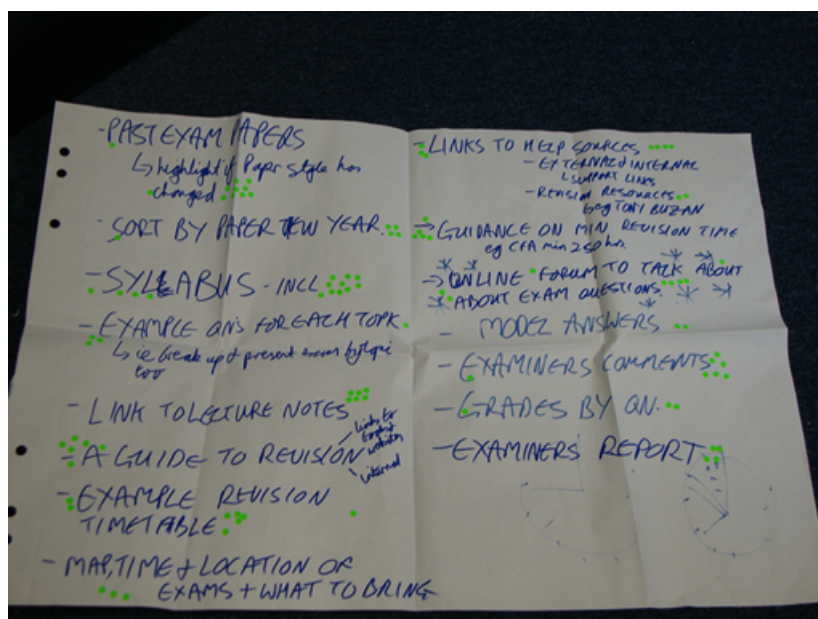 - PAST EXAM PAPERS
↳ highlight if Paper style has
changed
- SORT BY PAPER YEAR
- SYLLABUS - INCL
- EXAMPLE QNS FOR EACH TOPIC
↳ ie break up present exams by topic
too
- LINK TO LECTURE NOTES
- A GUIDE TO REVISION
links to
websites
internal
- EXAMPLE REVISION
TIMETABLE
- MAP, TIME + LOCATION OF
EXAMS + WHAT TO BRING
- LINKS TO HELP SOURCES
- EXTERNAL & INTERNAL
SUPPORT LINKS
- REVISION RESOURCES
eg TONY BUZAN
→ GUIDANCE ON MIN REVISION TIME
eg CFA min 250 hrs.
→ ONLINE FORUM TO TALK ABOUT
ABOUT EXAM QUESTIONS.
- MODEL ANSWERS
- EXAMINERS COMMENTS
- GRADES BY QN.
- EXAMINERS REPORT